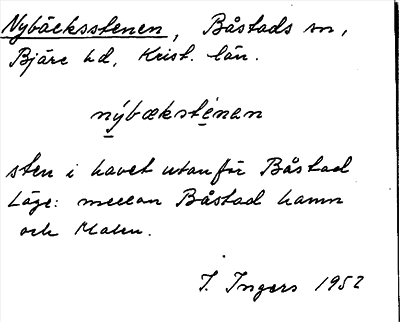 Nybäcksstenen, Båstads sn,
Bjäre hd, Krist. län.
nýbækstenan
sten i havet utanför Båstad
Läge: mellan Båstad hamn
och Malen.
I. Ingers 1952